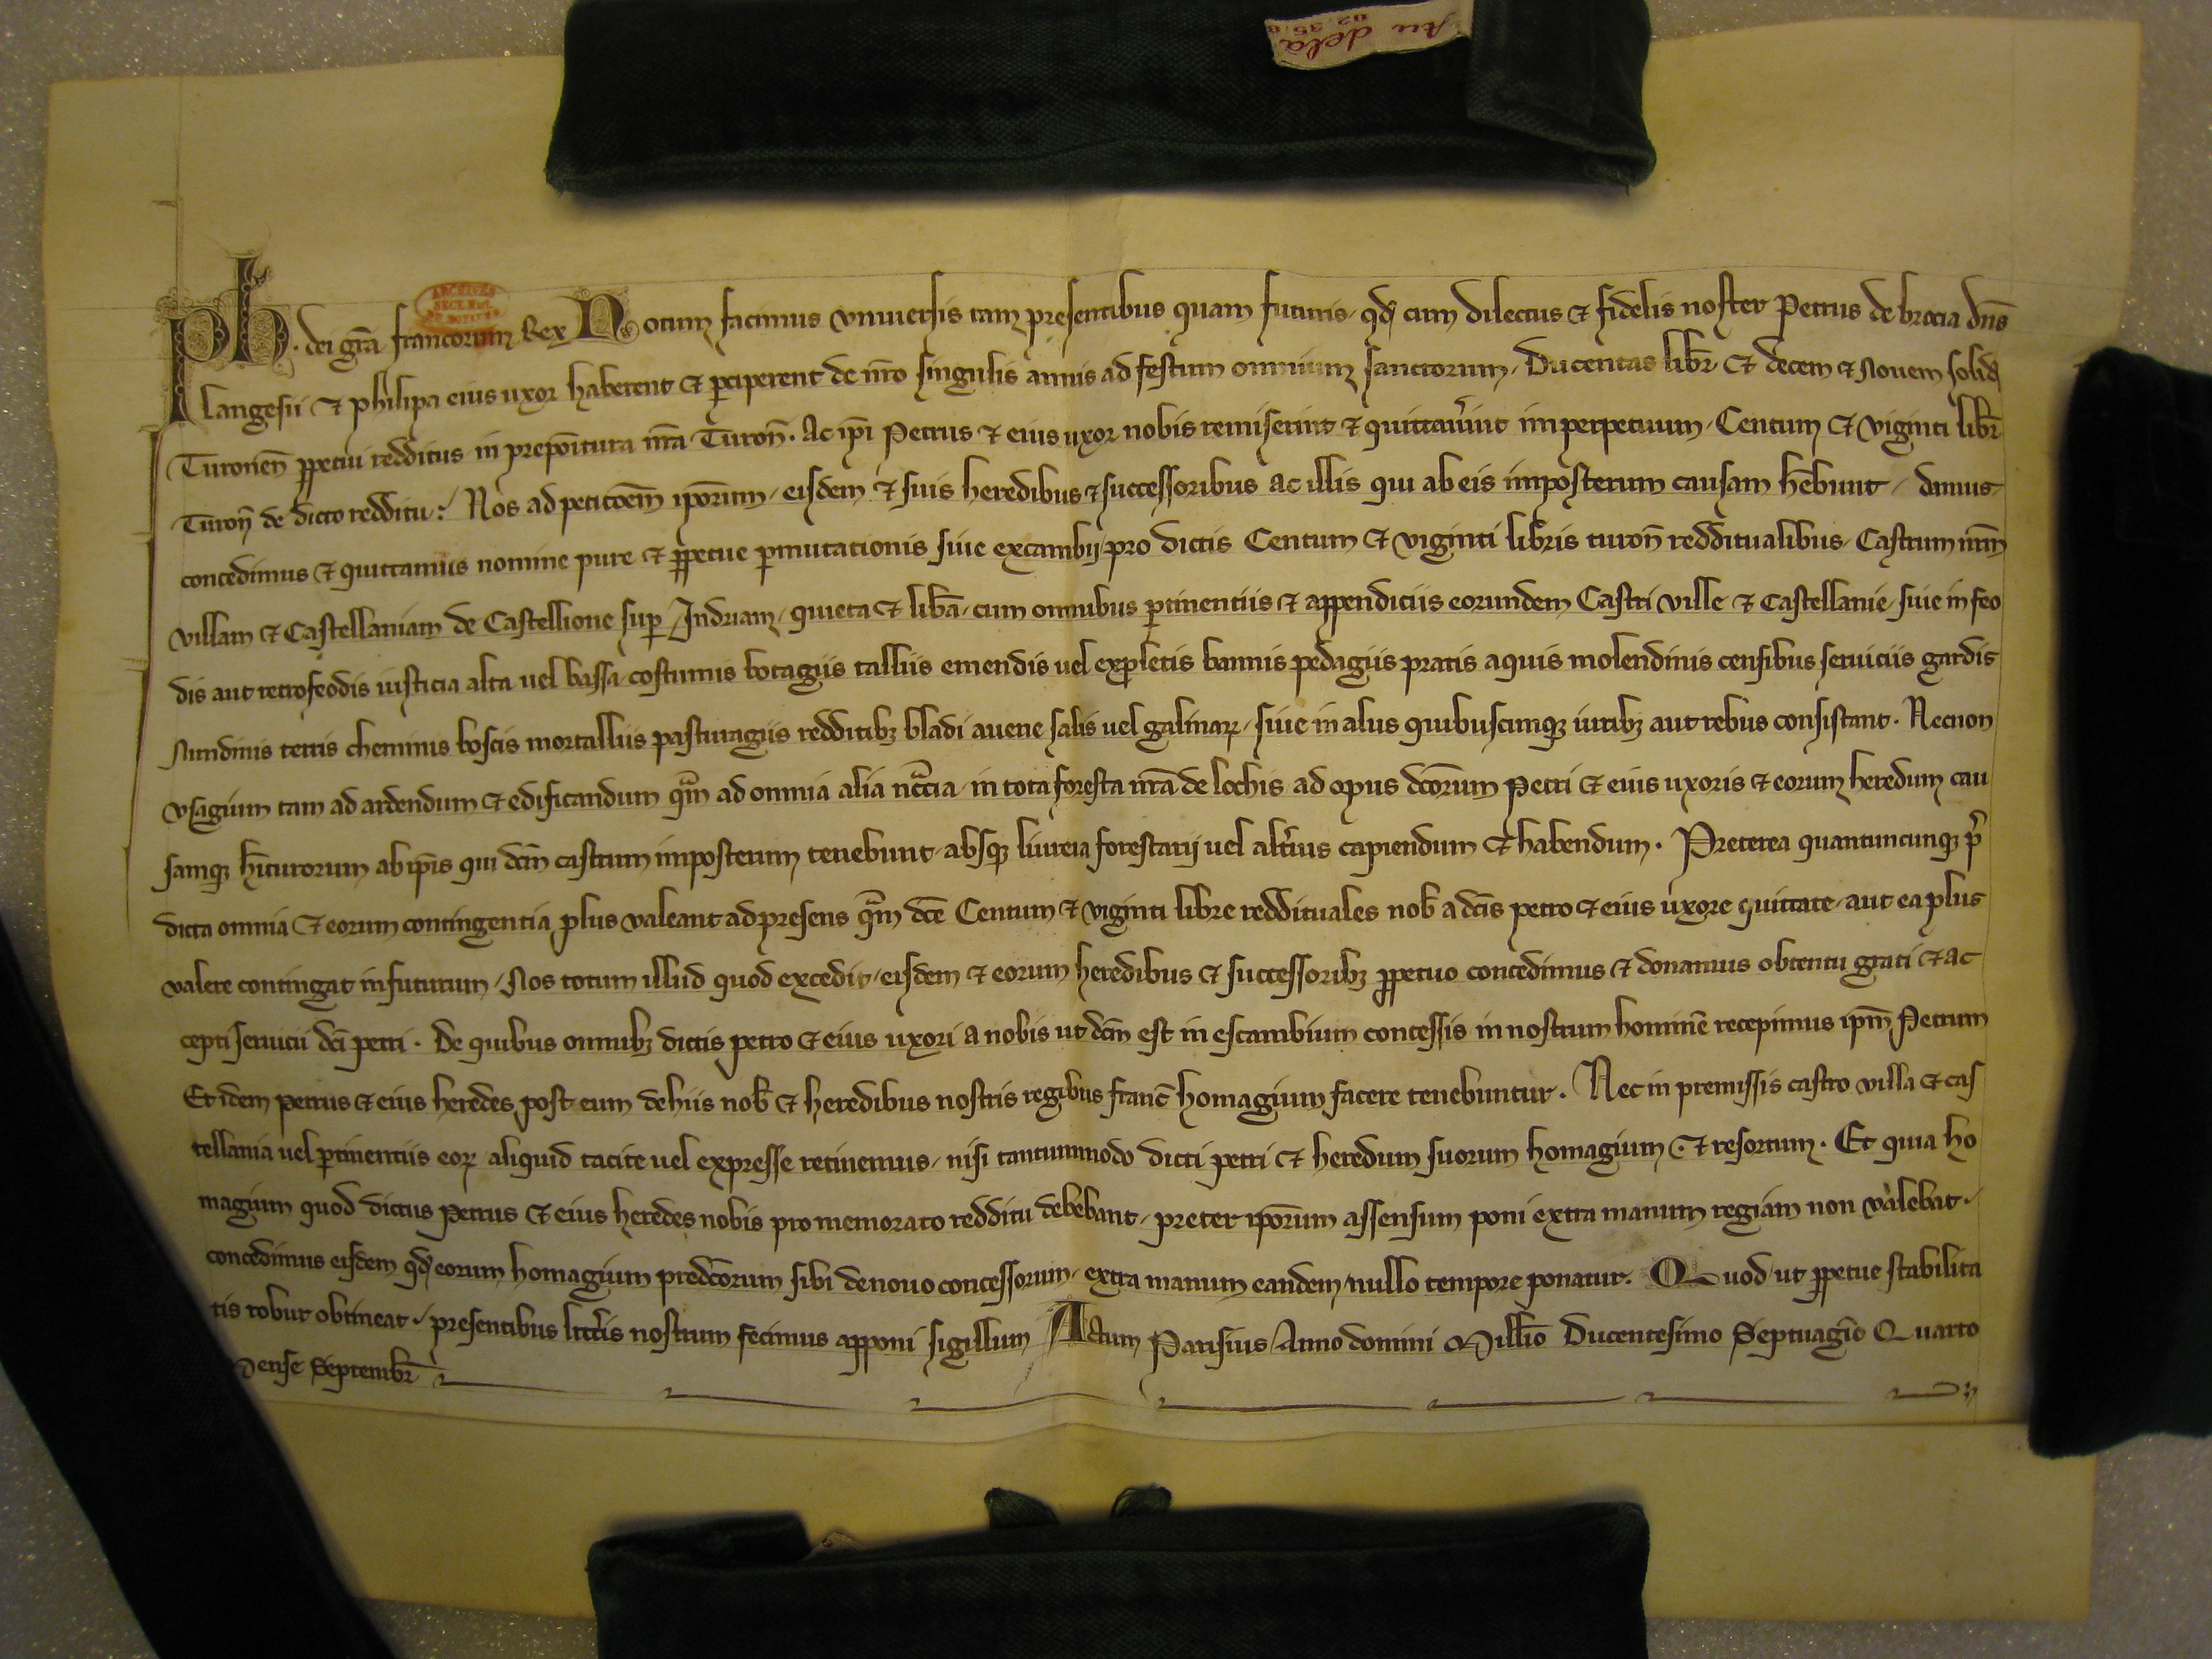 Au dela
ARCHIVES
Ph. dei grā francorum Rex Notum facimus vniuersis tam presentibus quam futuris, qđ cum dilectus & fidelis noster Petrus de brocia dn̄s
langesii & philipa eius uxor haberent & perciperent de nr̄o singulis annis ad festum omnium sanctorum, Ducentas libr̄ & decem & Nouem solid
Turonen̄ ꝑpetui redditus in prepōitura nr̄a Turon̄. Ac ip̄i Petrus & eius uxor nobis remiserint & quittau̓int imperpetuum, Centum & viginti libr̄
Turon̄ de dicto redditu: Nos ad peticōem ip̄orum, eisdem & suis heredibus & successoribus ac illis qui ab eis imposterum causam hēbunt, damus,
concedimus & quittamus nomine pure & ꝑpetue ꝑmutationis siue excambij, pro dictis Centum & viginti libris turon̄ redditualibus, Castrum nr̄m
villam & Castellaniam de Castellione suꝑ Indriam, quieta & lib̓a, cum omnibus ꝑtinentiis & appendiciis eorundem Castri ville & Castellanie, siue in feo
dis aut retrofeodis iusticia alta uel bassa costumis botagiis talliis emendis uel expletis bannis pedagiis pratis aquis molendinis censibus seruiciis gardis
Nundinis terris cheminis boscis mortalliis pasturagiis redditibꝫ bladi auene salis uel galinaꝝ, siue in aliis quibuscumqꝫ iuribꝫ aut rebus consistant. Necnon
vsagium tam ad ardendum & edificandum qᵃ̄m ad omnia alia nc̄c̄ia, in tota foresta nr̄a de lochis ad opus dc̄orum Petri & eius uxoris & eorum heredum cau
samqꝫ hīturorum ab ip̄is qui dc̄m castrum imposterum tenebunt, absqꝫ liureia forestarij uel alt̓ius capiendum & habendum. Preterea quantumcunqꝫ p̄
dicta omnia & eorum contingentia plus valeant ad presens qᵃ̄m dc̄e Centum & viginti libre reddituales nob̄ a dc̄is petro & eius uxore quittate, aut ea plus
valere contingat in futurum, Nos totum illud quod excedit, eisdem & eorum heredibus & successoribꝫ ꝑpetuo concedimus & donamus obtentu grati & ac
cepti seruicii dc̄i petri. De quibus omnibꝫ dictis petro & eius uxori a nobis ut dc̄m est in escambium concessis in nostrum hominē recepimus ip̄m Petrum
Et idem petrus & eius heredes post eum de hiis nob̄ & heredibus nostris regibus franc̄ homagium facere tenebuntur. Nec in premissis castro villa & cas
tellania uel ꝑtinentiis eoꝝ aliquid tacite uel expresse retinemus, nisi tantummodo dicti petri & heredum suorum homagium & resortum. Et quia ho
magium quod dictus Petrus & eius heredes nobis pro memorato redditu debebant, preter ip̄orum assensum poni extra manum regiam non valebat,
concedimus eisdem qđ eorum homagium predc̄orum sibi denouo concessorum, extra manum eandem nullo tempore ponatur. Quod ut ꝑpetue stabilita
tis robur obtineat, presentibus litt̓is nostrum fecimus apponi sigillum Actum Parisius, Anno domini Mill̄io Ducentesimo Septuagīo Quarto
Mense Septembr̄